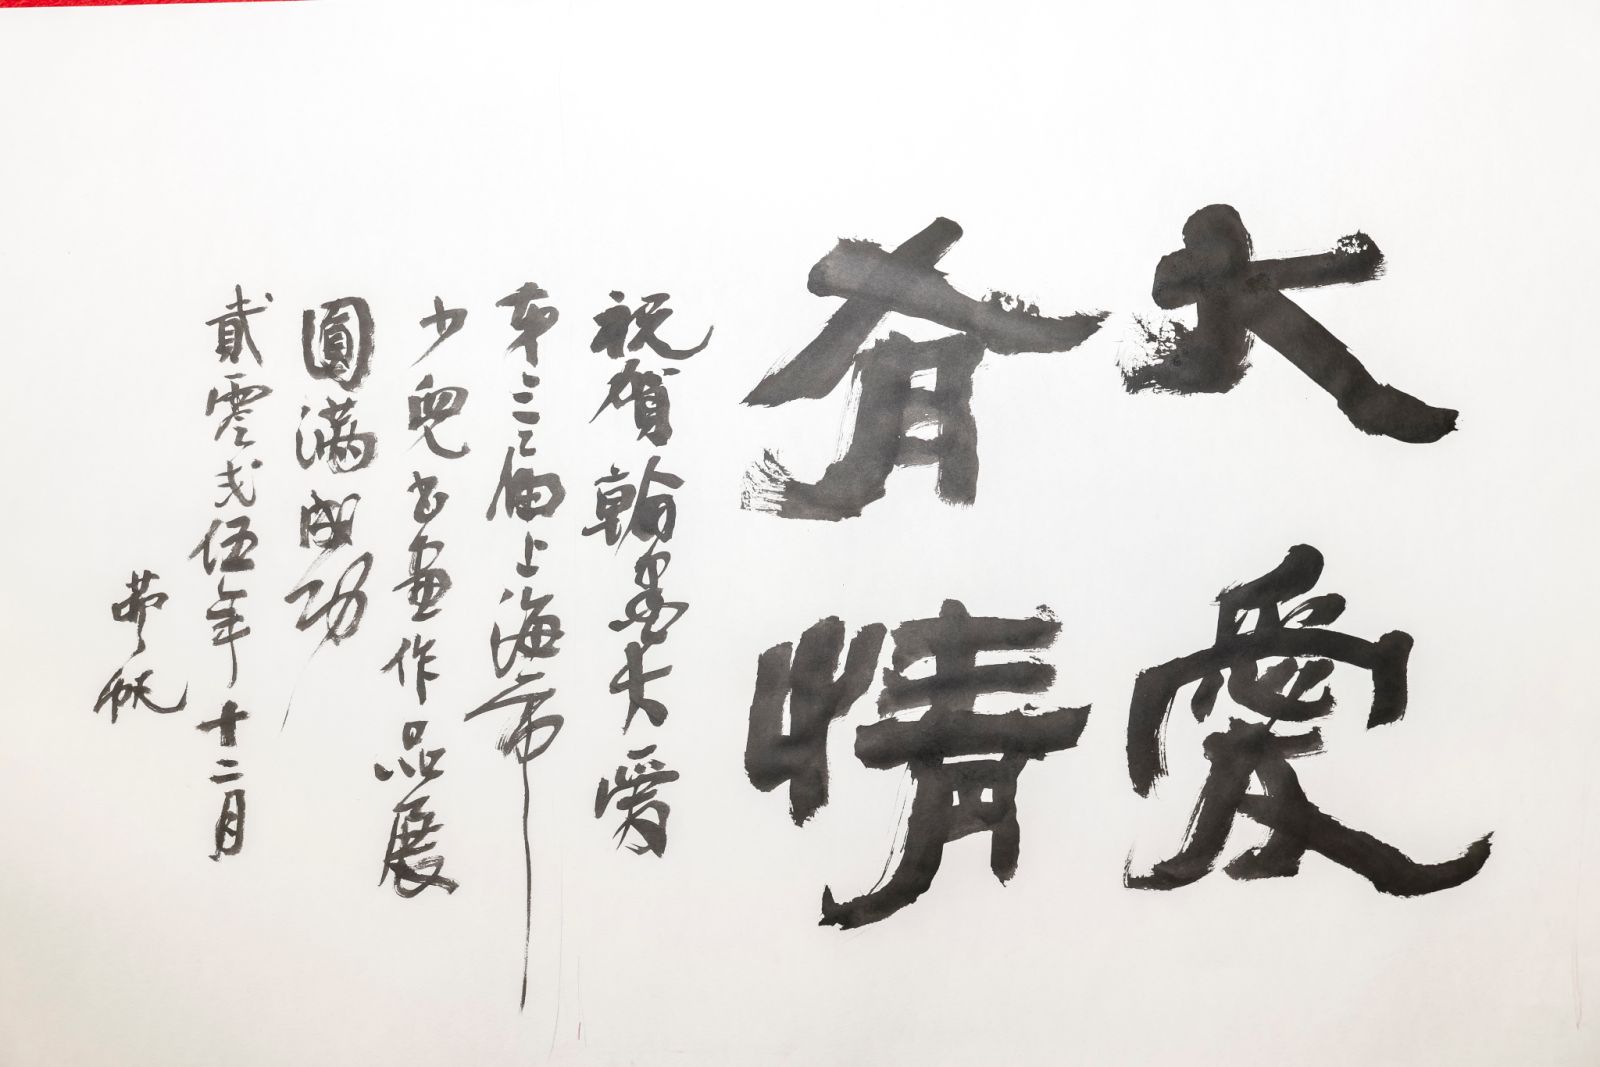 大愛
有情
祝賀翰墨大愛
第三届上海市
少兒书畫作品展
圓满成功
貳零弍伍年十二月